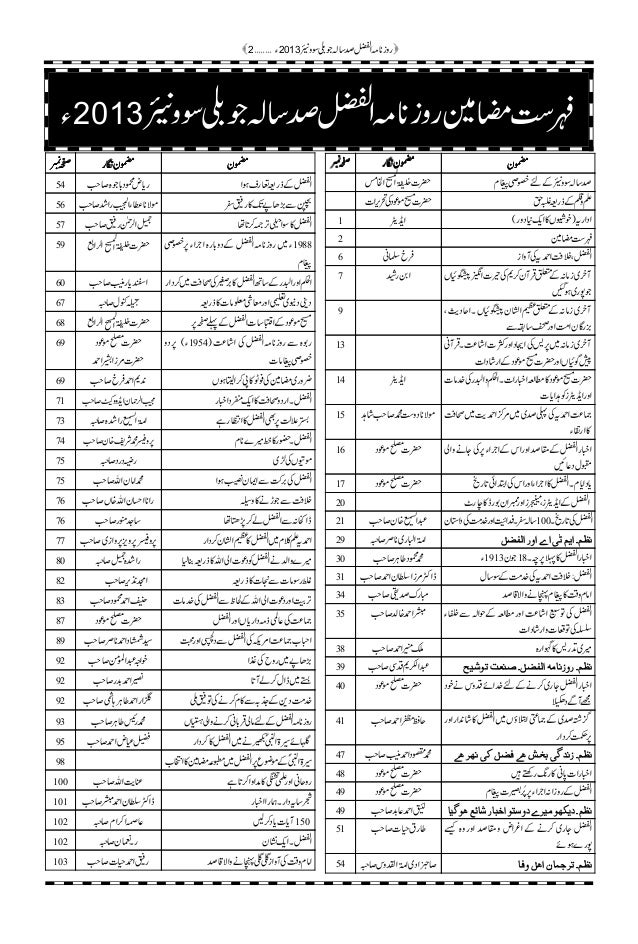 ﴿روزنامہ الفضل صد سالہ جوبلی سوونیئر 2013ء ........ 2﴾
فہرست مضامین روزنامہ الفضل صد سالہ جوبلی سوونیئر 2013ء
مضمون مضمون نگار صفحہ نمبر
صد سالہ سوونیئر کے لئے خصوصی پیغام حضرت خلیفۃ المسیح الخامس
علم و قلم کے ذریعہ غلبہ حق حضرت مسیح موعود کی تحریرات
اداریہ (خوشیوں کا ایک نیا دور) ایڈیٹر 1
فہرست مضامین 2
الفضل، خلافت احمدیہ کی آواز فرخ سلمانی 6
آخری زمانہ کے متعلق قرآن کریم کی حیرت انگیز پیشگوئیاں ابن رشید 7
جو پوری ہوگئیں
آخری زمانہ کے متعلق عظیم الشان پیشگوئیاں ۔ احادیث، 9
بزرگان امت اور صحف سابقہ سے
آخری زمانہ میں پریس کی ایجاد اور کثرت اشاعت ۔ قرآنی 13
پیش گوئیاں اور حضرت مسیح موعود کے ارشادات
حضرت مسیح موعود کا مطالعہ اخبارات ۔ الحکم والبدر کی خدمات ایڈیٹر 14
اور ایڈیٹرز کو ہدایات
جماعت احمدیہ کی پہلی صدی میں مرکز احمدیت میں صحافت مولانا دوست محمد صاحب شاہد 15
کا ارتقاء
اخبار الفضل کے مقاصد اور اس کے اجراء پر کی جانے والی حضرت مصلح موعود 16
مقبول دعائیں
یاد ایام ۔ الفضل کا اجراء اور اس کی ابتدائی تاریخ حضرت مصلح موعود 17
الفضل کے ایڈیٹرز، مینیجرز اور ممبران بورڈ کا چارٹ 20
الفضل کی تاریخ ۔ 100 سالہ سفر، فدائیت اور خدمت کی داستان عبدالسمیع خان صاحب 21
نظم۔ ایم ٹی اے اور الفضل امۃ الباری ناصر صاحبہ 29
اخبار الفضل کا پہلا پرچہ ۔ 18 جون 1913ء محمد محمود طاہر صاحب 30
الفضل: خلافت احمدیہ کی خدمت کے سو سال ڈاکٹر مرزا سلطان احمد صاحب 31
امام وقت کا پیغام پہنچانے والا قاصد مبارک صدیقی صاحب 34
الفضل کی توسیع اشاعت اور مطالعہ کے حوالہ سے خلفاء مبشر احمد خالد صاحب 35
سلسلہ کی توقعات و ارشادات
میری تدریس کا گہوارہ ملک منیر احمد صاحب 38
نظم۔ روزنامہ الفضل۔ صنعت توشیح عبدالکریم قدسی صاحب 39
اخبار الفضل جاری کرنے کے لئے خدائے قدوس نے خود حضرت مصلح موعود 40
مجھے آگے دھکیلا
گزشتہ صدی کے جماعتی ابتلاؤں میں الفضل کا شاندار اور حافظ مظفر احمد صاحب 41
پر حکمت کردار
نظم۔ زندگی بخش ھے فضل کی نھر ھے محمد مقصود احمد منیب صاحب 47
اخبارات پانی کا رنگ رکھتے ہیں حضرت مصلح موعود 48
الفضل کے روزانہ اجراء پر پُر بصیرت پیغام حضرت مصلح موعود 49
نظم۔ دیکھو میرے دوستو اخبار شائع ھوگیا لئیق احمد عابد صاحب 49
الفضل جاری کرنے کے اغراض و مقاصد اور وہ کیسے طارق حیات صاحب 51
پورے ہوئے
نظم۔ ترجمان اھل وفا صاحبزادی امۃ القدوس صاحبہ 54
مضمون مضمون نگار صفحہ نمبر
الفضل کے ذریعہ تعارف ہوا ریاض محمود باجوہ صاحب 54
بچپن سے بڑھاپے تک کا رفیق سفر مولانا عطاء المجیب راشد صاحب 56
الفضل کا سواحیلی ترجمہ کرتا تھا جمیل الرحمٰن رفیق صاحب 57
1988ء میں روزنامہ الفضل کے دوبارہ اجراء پر خصوصی حضرت خلیفۃ المسیح الرابع 59
پیغام
الحکم اور البدر کے ساتھ الفضل کا برصغیر کی صحافت میں کردار اسفند یار منیب صاحب 60
دینی دنیوی تعلیمی اور معاشی معلومات کا ذریعہ جمیلہ کنول صاحبہ 67
مسیح موعود کے اقتباسات الفضل کے پہلے صفحہ پر حضرت خلیفۃ المسیح الرابع 68
ربوہ سے روزنامہ الفضل کی اشاعت (1954ء) پر دو حضرت مصلح موعود 69
خصوصی پیغامات حضرت مرزا بشیر احمد
ضروری مضامین کی فوٹو کاپی کرا لیتا ہوں ندیم احمد فرخ صاحب 69
الفضل۔ اردو صحافت کا ایک منفرد اخبار مجیب الرحمان ایڈووکیٹ صاحب 71
بستر علالت پر بھی الفضل کا انتظار ہے امۃ السمیع راشدہ صاحبہ 73
الفضل۔ حضور کا خط میرے نام پروفیسر محمد شریف خان صاحب 74
موتیوں کی لڑی رضیہ درد صاحبہ 75
الفضل کی برکت سے ایمان نصیب ہوا محمد امان اللہ صاحب 75
خلافت سے جوڑنے کا وسیلہ رانا احسان اللہ خاں صاحب 76
ڈاکخانہ سے الفضل لے کر پڑھتا تھا ساجد منور صاحب 76
احمدیہ علم کلام میں الفضل کا عظیم الشان کردار پروفیسر پرویز پروازی صاحب 77
میرے والد نے الفضل کو دعوت الی اللہ کا ذریعہ بنا لیا راشدہ جمیل صاحبہ 80
غلط رسومات سے نجات کا ذریعہ امجد نذیر صاحب 82
تربیت اور دعوت الی اللہ کے لحاظ سے الفضل کی خدمات حنیف احمد محمود صاحب 83
جماعت کی عالمی ذمہ داریاں اور الفضل حضرت مصلح موعود 87
احباب جماعت امریکہ کی الفضل سے دلچسپی اور محبت سید شمشاد احمد ناصر صاحب 89
بڑھاپے میں روح کی غذا خواجہ عبدالمومن صاحب 92
بستے میں ڈال کر لے آتا نصیر احمد بدر صاحب 92
خدمت دین کے جذبہ سے کام کرنے کی توفیق ملی گلزار احمد طاہر ہاشمی صاحب 92
روزنامہ الفضل کے لئے مالی قربانی کرنے والی ہستیاں محمد رئیس طاہر صاحب 93
گلہائے سیرۃ النبیؐ بکھیرنے میں الفضل کا کردار فضیل عیاض احمد صاحب 95
سیرۃ النبیؐ کے موضوع پر الفضل میں مطبوعہ مضامین کا انتخاب 98
روحانی اور علمی تشنگی کا مداوا کرتا ہے عنایت اللہ صاحب 100
شجر سایہ دار۔ ہمارا اخبار ڈاکٹر سلطان احمد مبشر صاحب 101
150 آیات یاد کر لیں عاصمہ اکرام صاحبہ 102
الفضل۔ ایک نشان ر نعمان صاحبہ 102
امام وقت کی آواز گلی گلی پہنچانے والا قاصد رفیق احمد حیات صاحب 103